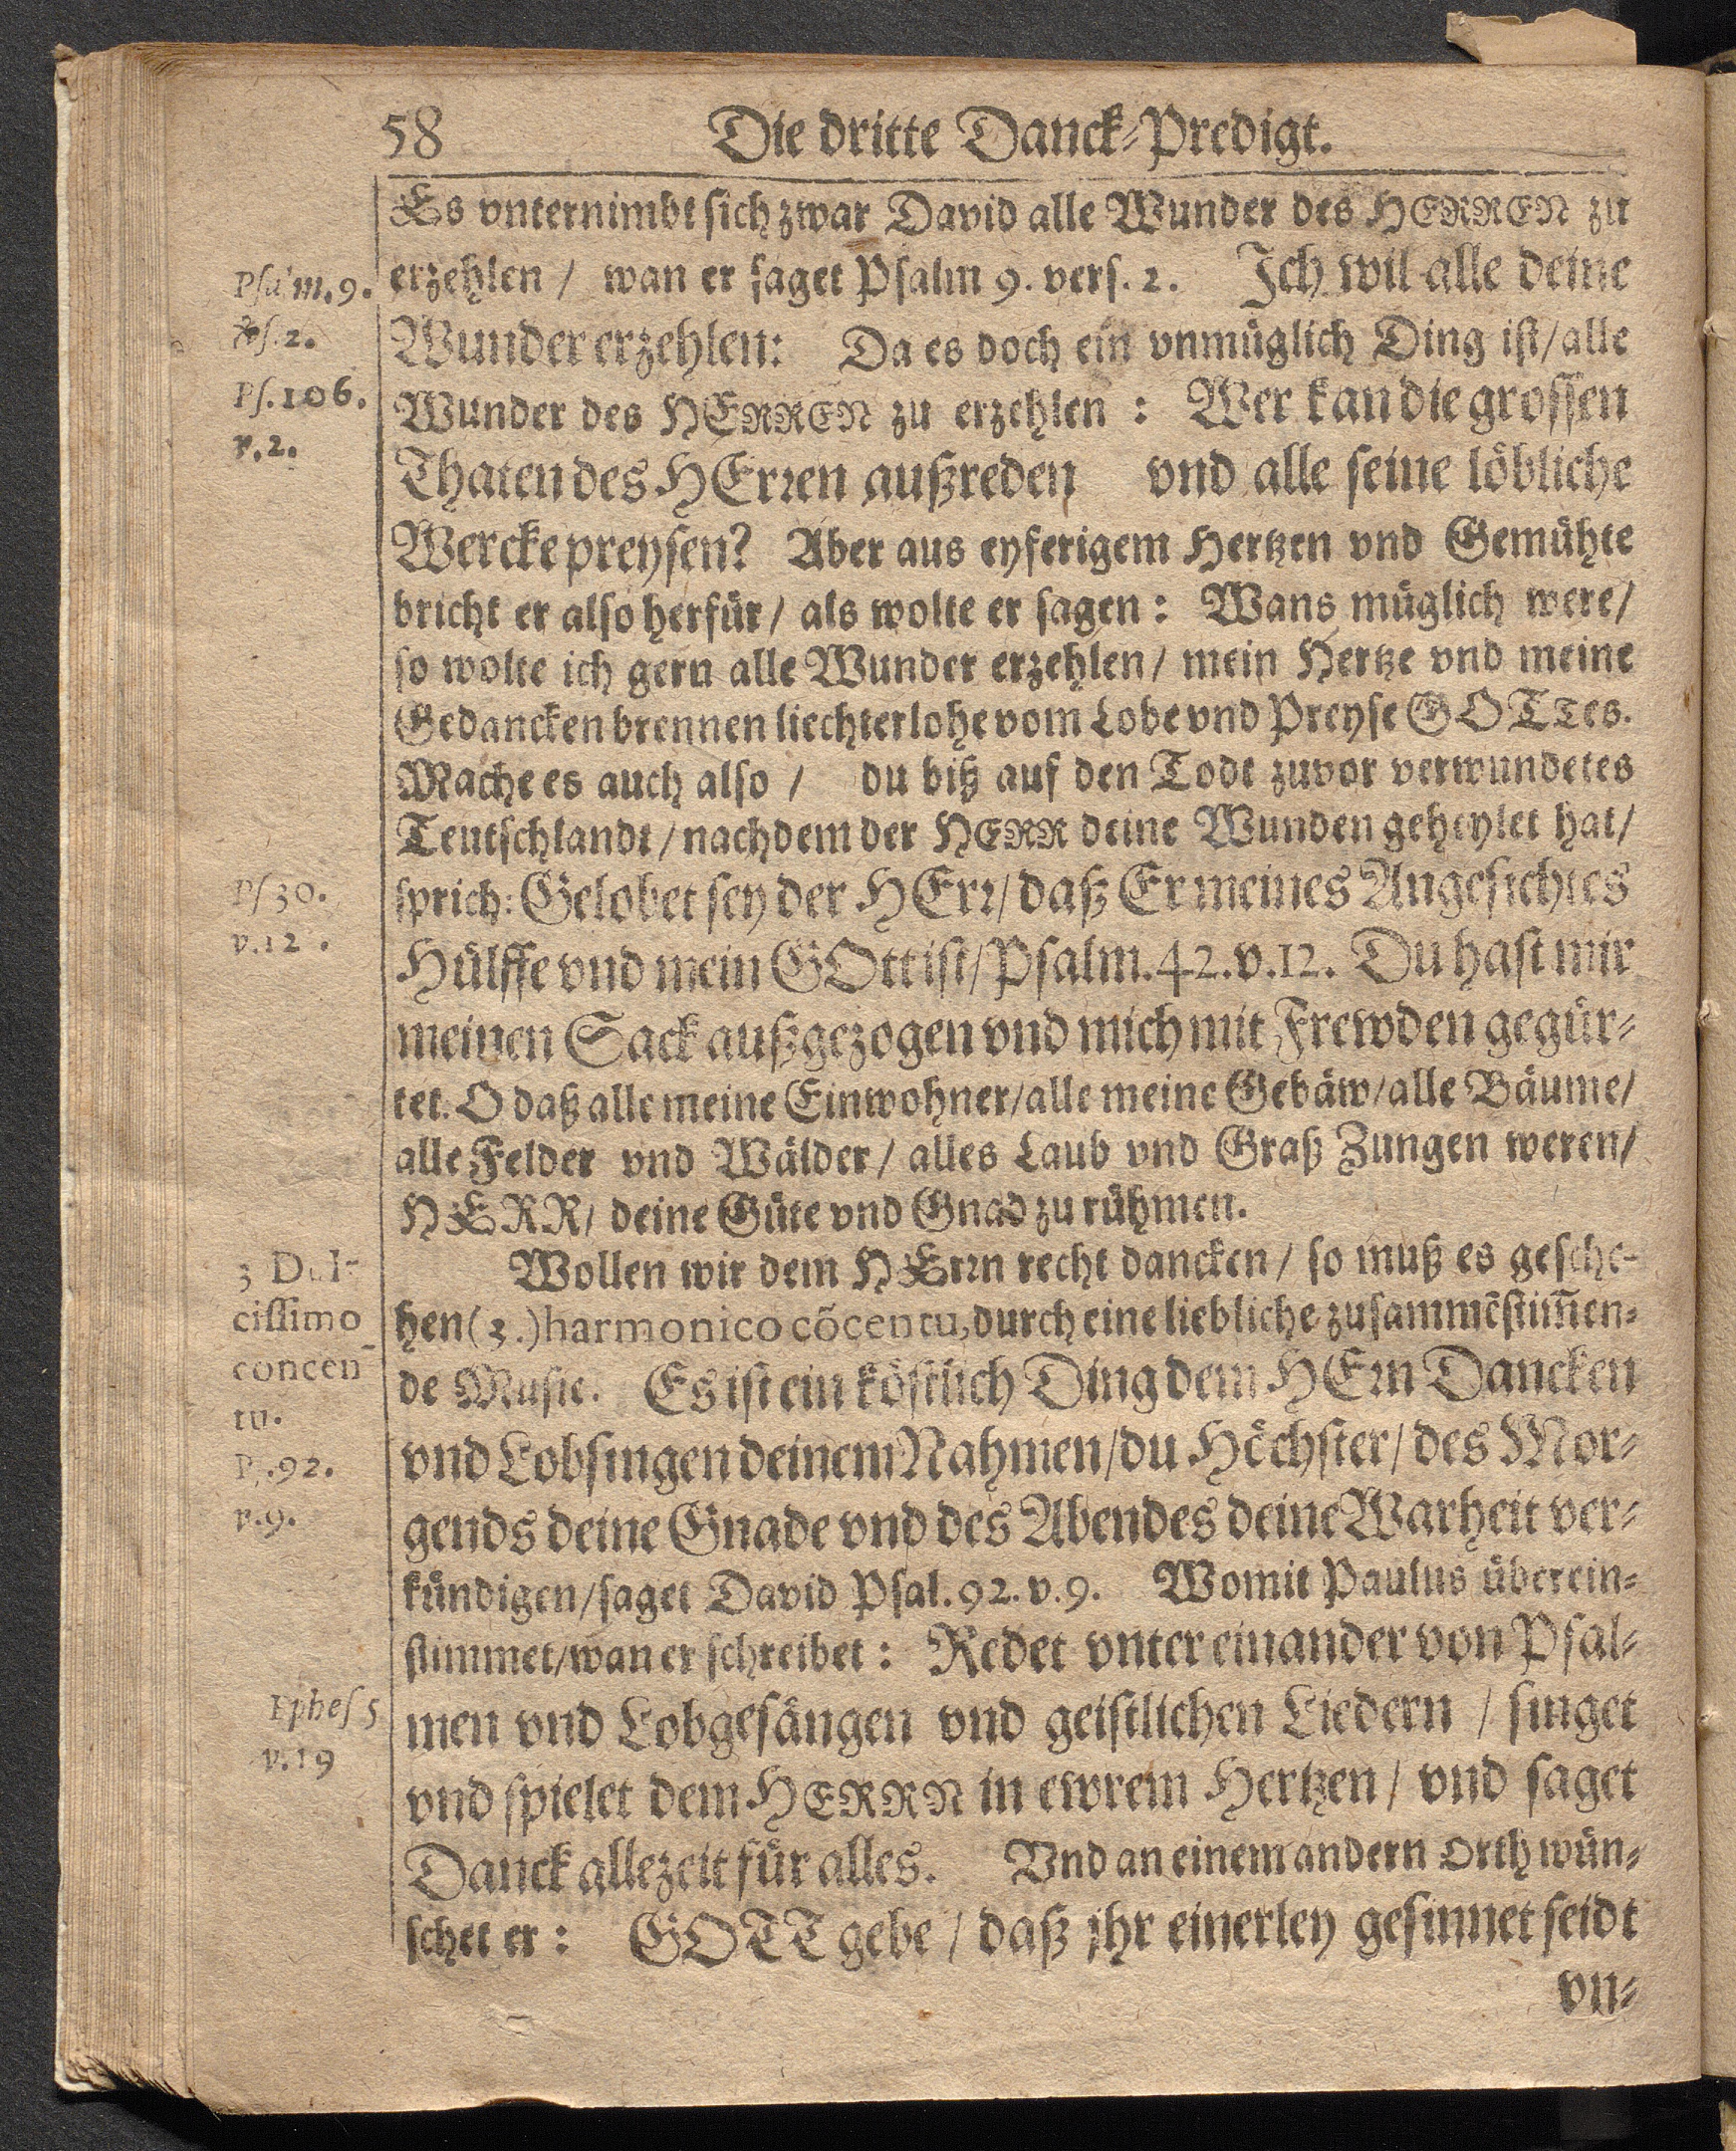 58 Die dritte Danck-Predigt.
Es vnternimbt sich zwar David alle Wunder des HERREN zu
erzehlen / wan er saget Psalm 9. vers. 2. Ich wil alle deine
Wunder erzehlen: Da es doch ein vnmüglich Ding ist/alle
Wunder des HERREN zu erzehlen : Wer kan die grossen
Thaten des HErren außreden vnd alle seine löbliche
Wercke preysen? Aber aus eyferigem Hertzen vnd Gemühte
bricht er also herfür / als wolte er sagen : Wans müglich were/
so wolte ich gern alle Wunder erzehlen / mein Hertze vnd meine
Gedancken brennen liechterlohe vom Lobe vnd Preyse GOTTes.
Mache es auch also / du biß auf den Todt zuvor verwundetes
Teutschlandt / nachdem der HERR deine Wunden geheylet hat/
sprich: Gelobet sey der HErr/ daß Er meines Angesichtes
Hülffe vnd mein GOtt ist/ Psalm. 42. v. 12. Du hast mir
meinen Sack außgezogen vnd mich mit Frewden gegür-
tet. O daß alle meine Einwohner/alle meine Gebäw/alle Bäume/
alle Felder vnd Wälder / alles Laub vnd Graß Zungen weren/
HERR/ deine Güte vnd Gnad zu rühmen.
Wollen wir dem HErrn recht dancken / so muß es gesche-
hen (3.) harmonico cõcentu, durch eine liebliche zusammẽstim̃en-
de Music. Es ist ein köstlich Ding dem HErrn Dancken
vnd Lobsingen deinem Nahmen/du Höchster/ des Mor-
gends deine Gnade vnd des Abendes deine Warheit ver-
kündigen/saget David Psal. 92. v. 9. Womit Paulus überein-
stimmet/wan er schreibet : Redet vnter einander von Psal-
men vnd Lobgesängen vnd geistlichen Liedern / singet
vnd spielet dem HERRN in ewrem Hertzen / vnd saget
Danck allezeit für alles. Vnd an einem andern Orth wün-
schet er : GOTT gebe / daß jhr einerley gesinnet seidt
vn-
Psalm. 9.
℣s. 2.
Ps. 106.
v. 2.
Ps 30.
v. 12.
3 Dul-
cissimo
concen-
tu.
Ps. 92.
v. 9.
Ephes 5
v. 19